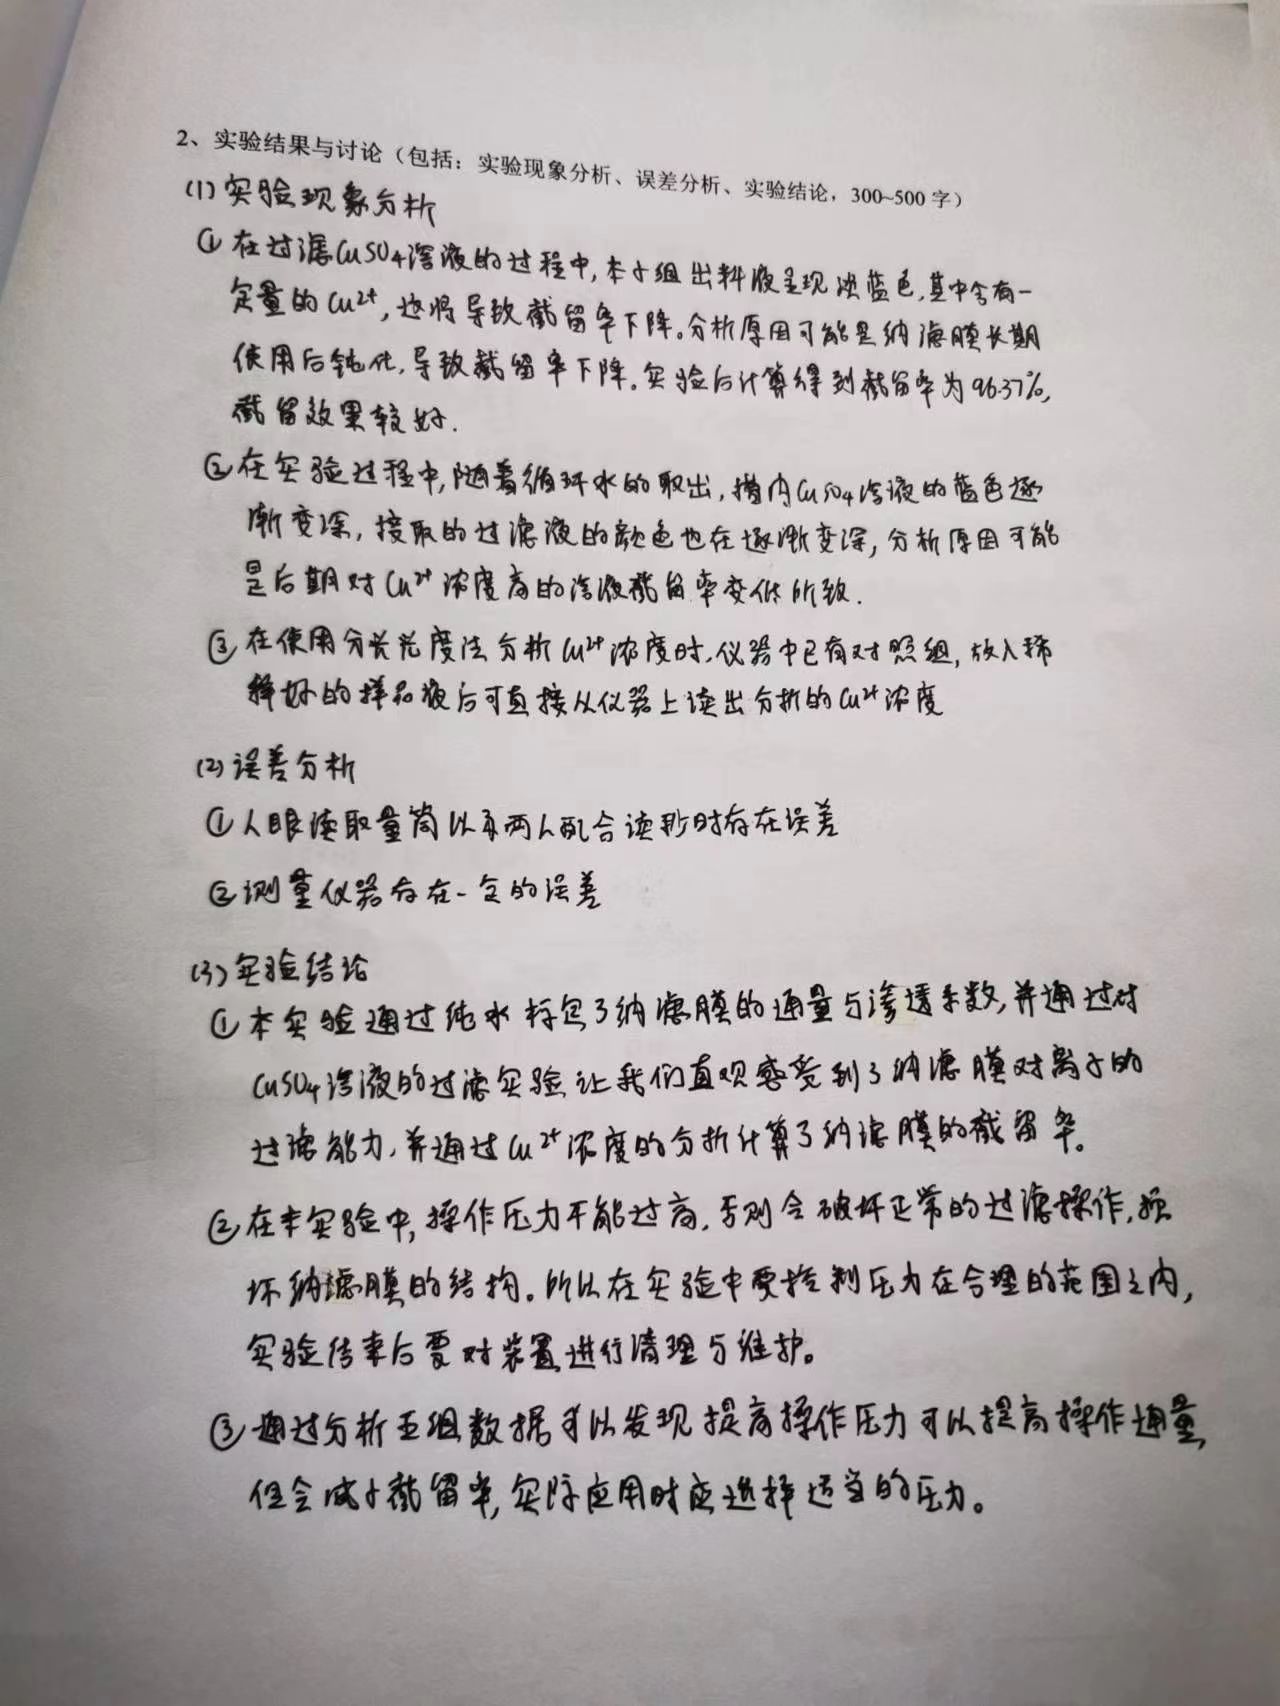 2、实验结果与讨论（包括：实验现象分析、误差分析、实验结论，300~500字）
(1)实验现象分析
①在过滤CuSO4溶液的过程中,本小组出料液呈现淡蓝色,其中含有一
定量的Cu²⁺,这将导致截留率下降。分析原因可能是纳滤膜长期
使用后钝化,导致截留率下降。实验后计算得到截留率为96.37%,
截留效果较好.
②在实验过程中,随着循环水的取出,槽内CuSO4溶液的蓝色逐
渐变深,接取的过滤液的颜色也在逐渐变深,分析原因可能
是后期对Cu²⁺浓度高的溶液截留率变低所致.
③在使用分光光度法分析Cu²⁺浓度时,仪器中已有对照组,放入稀
释好的样品液后可直接从仪器上读出分析的Cu²⁺浓度
(2)误差分析
①人眼读取量筒以及两人配合读秒时存在误差
②测量仪器存在一定的误差
(3)实验结论
①本实验通过纯水标定了纳滤膜的通量与渗透系数,并通过对
CuSO4溶液的过滤实验让我们直观感觉到了纳滤膜对离子的
过滤能力,并通过Cu²⁺浓度的分析计算了纳滤膜的截留率。
②在本实验中,操作压力不能过高,否则会破坏正常的过滤操作,损
坏纳滤膜的结构。所以在实验中要控制压力在合理的范围之内,
实验结束后要对装置进行清理与维护。
③通过分析五组数据可以发现提高操作压力可以提高操作通量,
但会减小截留率,实际应用时应选择适当的压力。